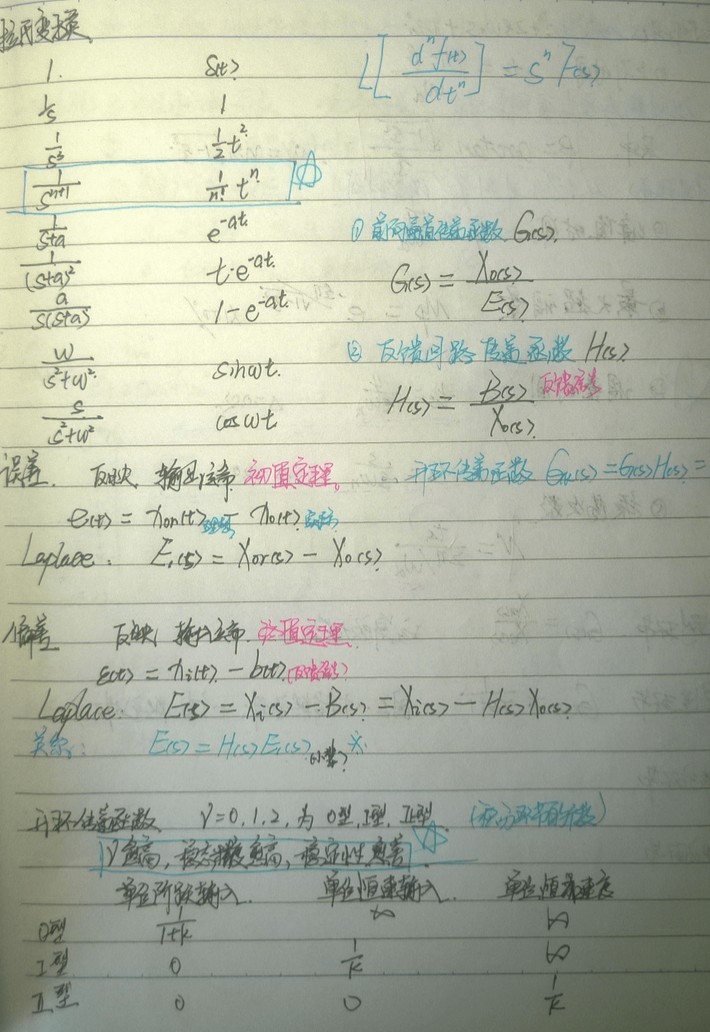 拉氏变换
1. δ(t)
L[dⁿf(t)/dtⁿ] = sⁿF(s)
1/s 1
1/s³ 1/2 t²
1/sⁿ⁺¹ 1/n! tⁿ
1/(s+a) e^(-at)
1/(s+a)² t·e^(-at)
a/(s(s+a)) 1-e^(-at)
w/(s²+w²) sinωt
s/(s²+w²) cosωt
① 前向通道传递函数 G(s)
G(s) = Xo(s)/E(s)
② 反馈回路传递函数 H(s)
H(s) = B(s)/Xo(s) 反馈信号
误差. 反映 输出 初值定理。
开环传递函数 Gk(s)=G(s)H(s)=
e(t) = xor(t) 理想 - xo(t) 实际
Laplace: E₁(s) = Xor(s) - Xo(s)
偏差 反映 终值定理
ε(t) = xi(t) - b(t) (反馈信号)
Laplace: E(s) = Xi(s) - B(s) = Xi(s) - H(s)Xo(s)
关系: E(s) = H(s)E₁(s)
开环传递函数 ν=0,1,2,为 0型,I型,II型. (积分环节的个数)
ν愈高,稳态精度愈高,稳定性愈差
单位阶跃输入. 单位恒速输入. 单位恒加速度
0型 1/(1+k) ∞ ∞
I型 0 1/k ∞
II型 0 0 1/k